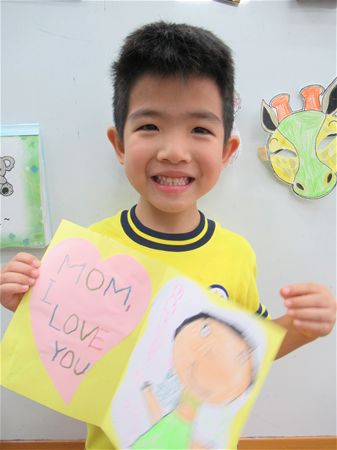 MOM,
I
LOVE
YOU